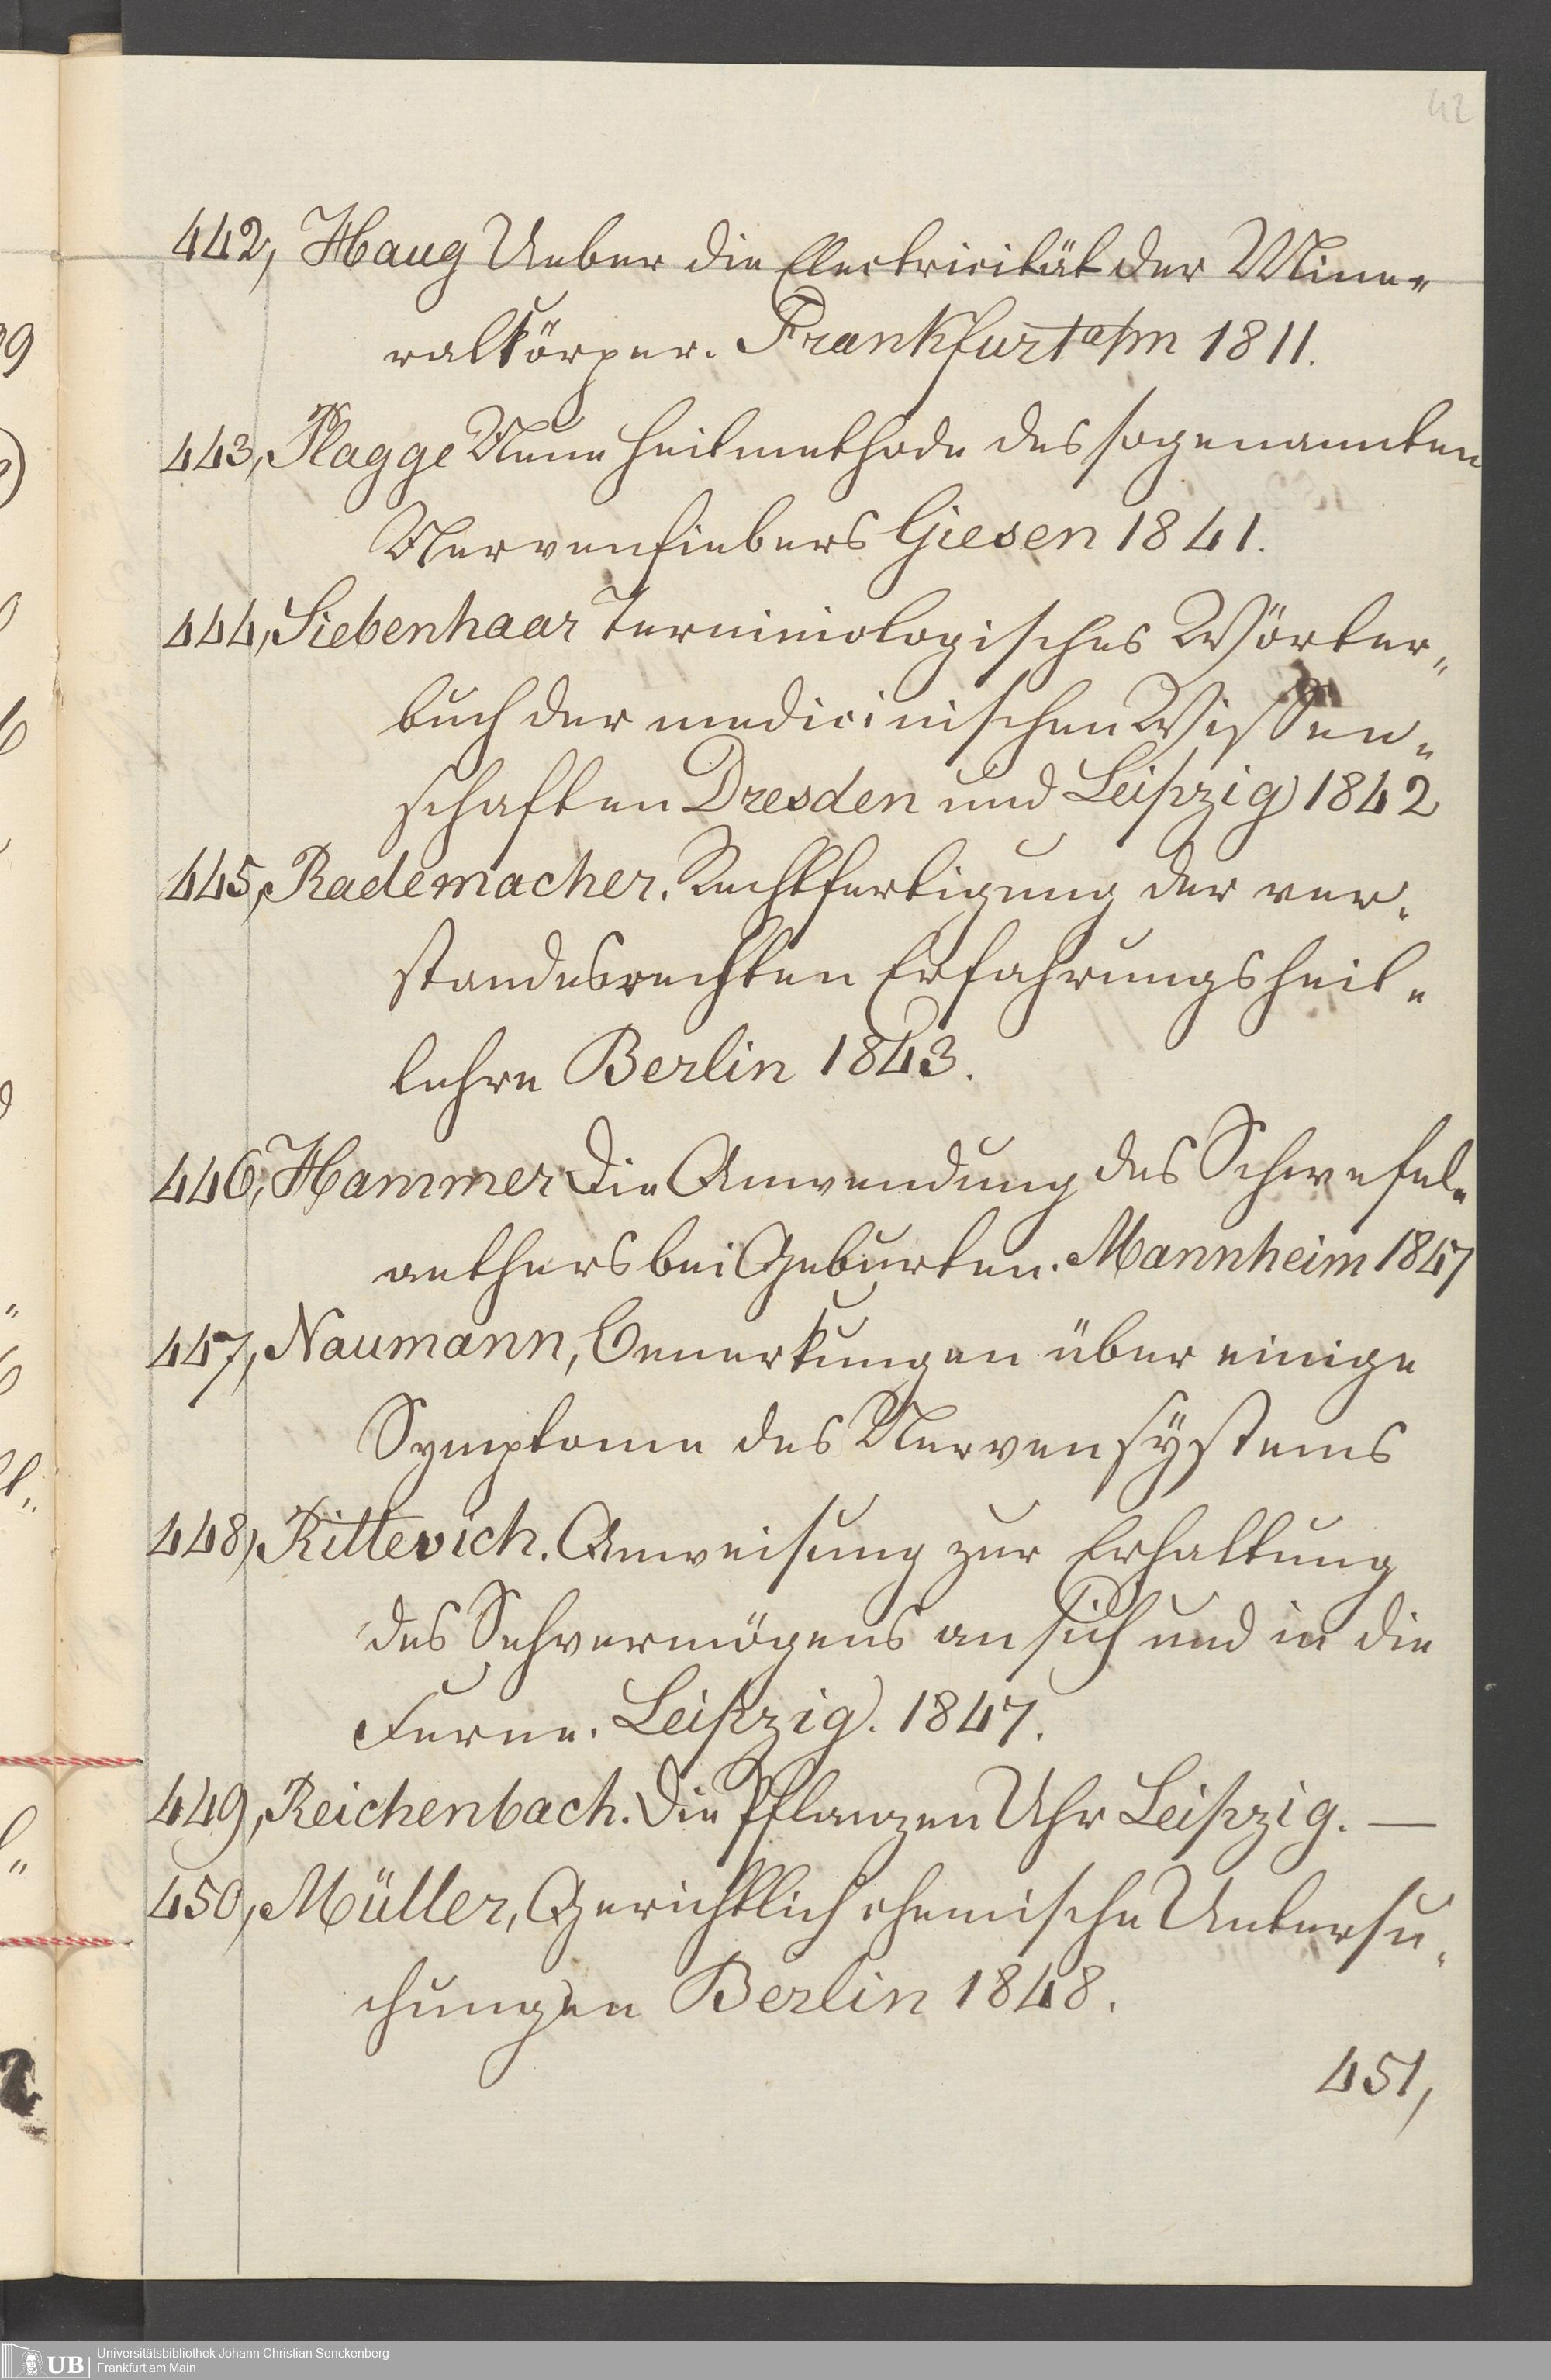 42
442, Haug Ueber die Electricität der Mine„
ralkörper. Frankfurt a/m 1811.
443, Plagge Neue Heilmethode des sogenannten
Nervenfiebers Giesen 1841.
444, Siebenhaar Terminiologisches Wörter„
buch der medicinischen Wissen„
schaften Dresden und Leipzig 1842
445, Rademacher. Rechtfertigung der ver„
standesrechten Erfahrungsheil„
lehre Berlin 1843.
446, Hammer Die Anwendung des Schwefel„
aethers bei Geburten. Mannheim 1847
447, Naumann, Bemerkungen über einige
Symptome des Nervensÿstems
448, Rittevich. Anweisung zur Erhaltung
des Sehvermögens an sich und in die
Ferne. Leipzig. 1847.
449, Reichenbach. Die Pflanzen Uhr Leipzig. —
450, Müller, Gerichtlich chemische Untersu„
chungen Berlin 1848.
451,
UB
Universitätsbibliothek Johann Christian Senckenberg
Frankfurt am Main